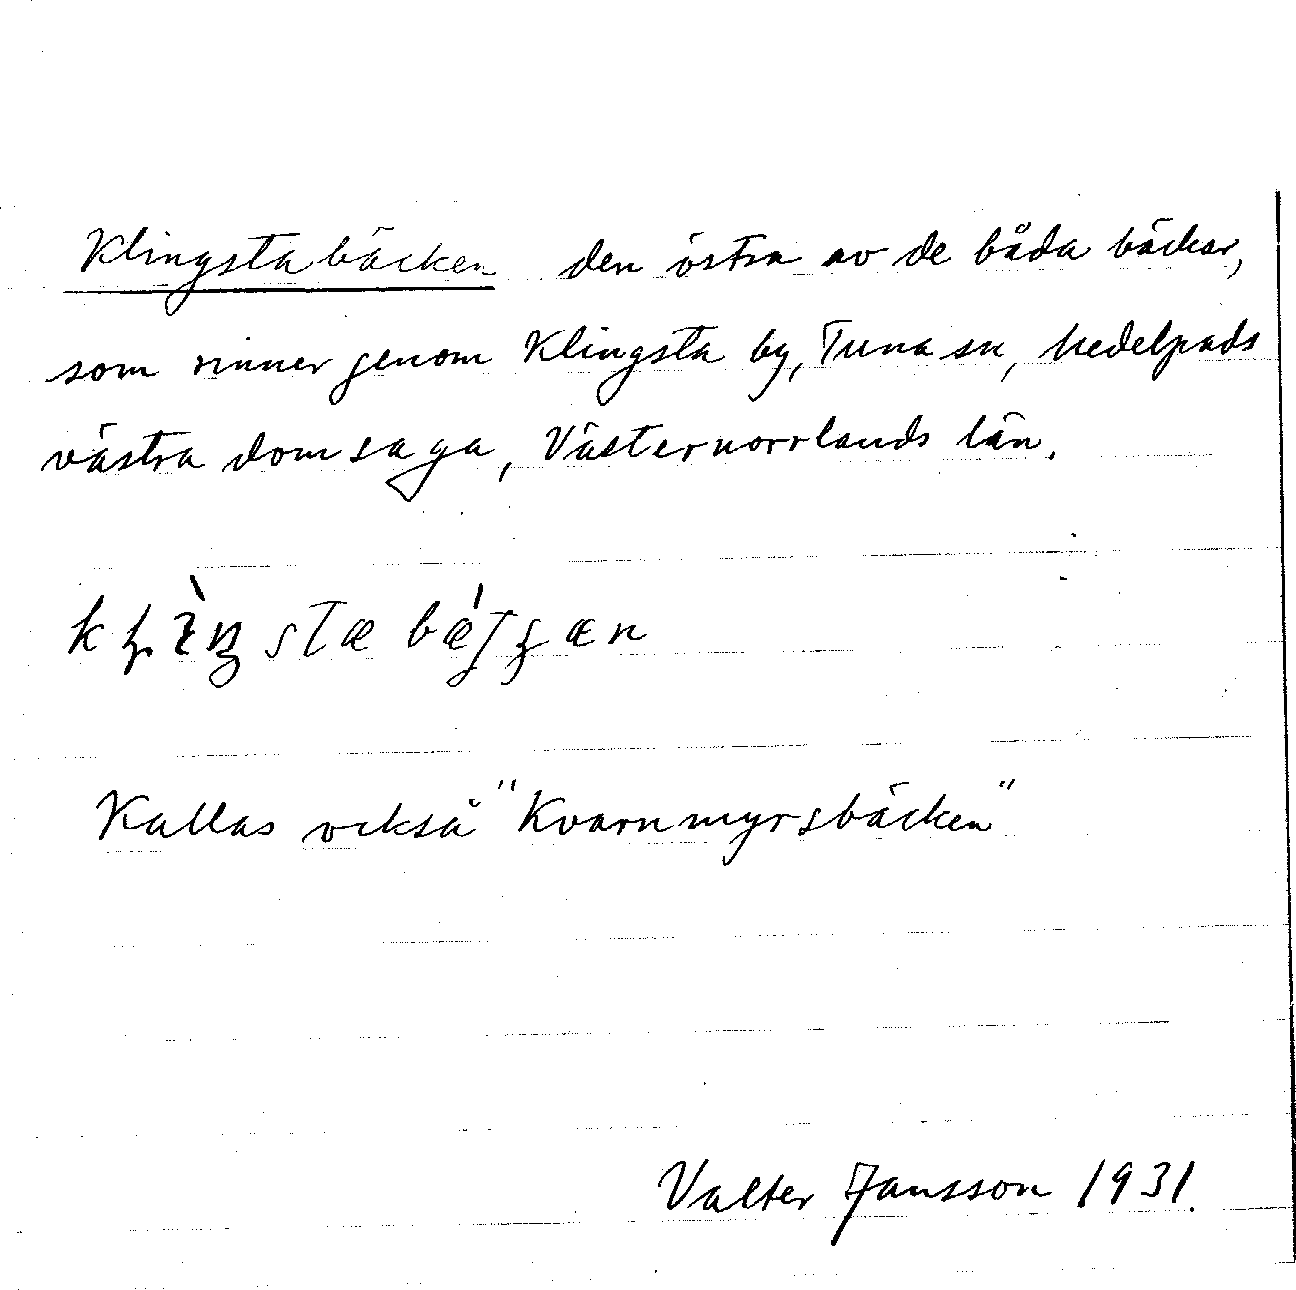 Klingstabäcken den östra av de båda bäckar,
som rinner genom Klingsta by, Tuna sn, Medelpads
västra domsaga, Västernorrlands län.
Kallas också "Kvarnmyrsbäcken"
Valter Jansson 1931.